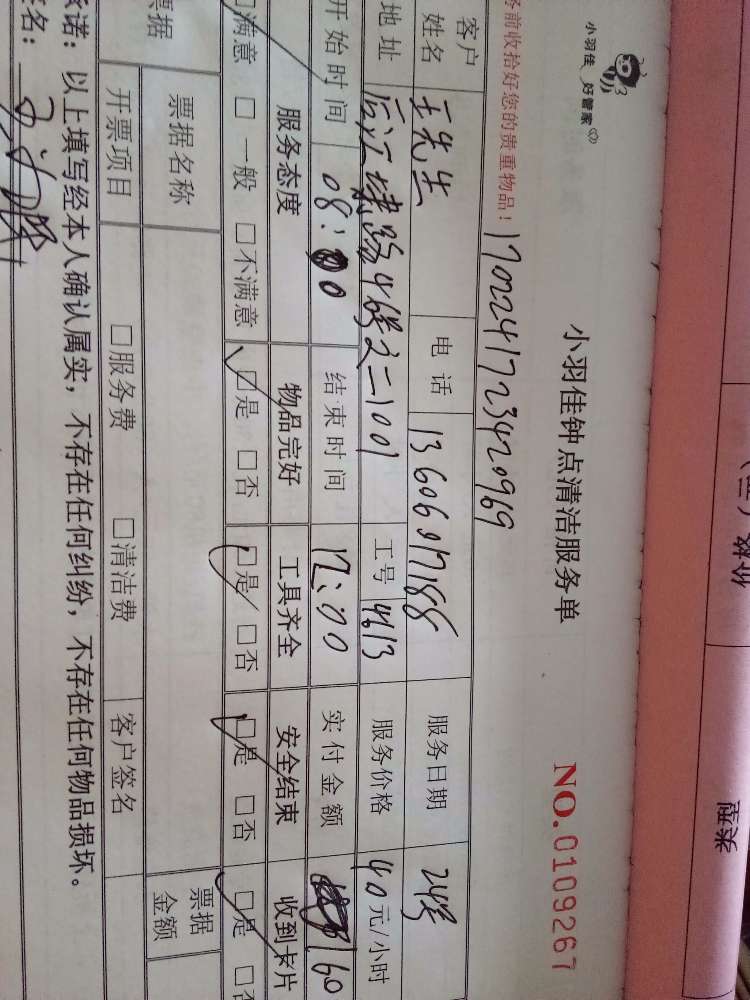 小羽佳 好管家
小羽佳钟点清洁服务单 NO.0109267
前收拾好您的贵重物品! 1702241723420969
客户姓名 王先生 电话 13606017188 服务日期 24号
地址 后江埭路4号之二1001 工号 4613 服务价格 40元/小时
开始时间 08:00 结束时间 12:00 实付金额 160
服务态度 物品完好 工具齐全 安全结束 收到卡片
□满意 □一般 □不满意 □是 □否 □是 □否 □是 □否 □是 □否
票据 票据名称 票据金额
开票项目 □服务费 □清洁费 客户签名
承诺:以上填写经本人确认属实,不存在任何纠纷,不存在任何物品损坏。
签名: